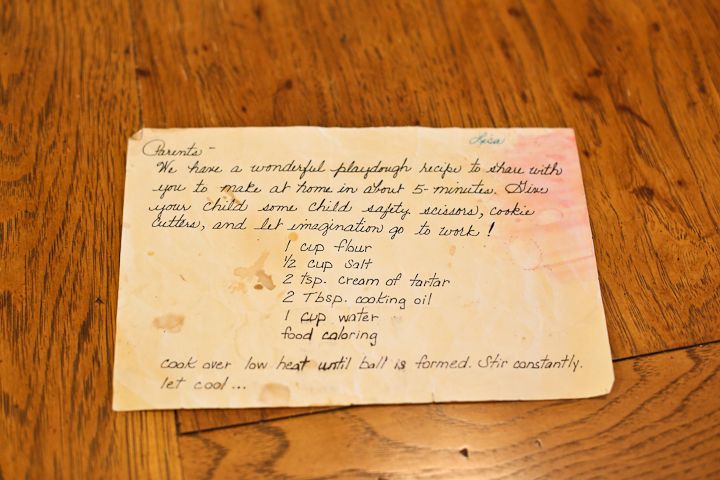 Lisa
Parents-
We have a wonderful playdough recipe to share with
you to make at home in about 5-minutes. Give
your child some child safety scissors, cookie
cutters, and let imagination go to work!
1 cup flour
1/2 cup salt
2 tsp. cream of tartar
2 Tbsp. cooking oil
1 cup water
food coloring
cook over low heat until ball is formed. Stir constantly.
let cool...